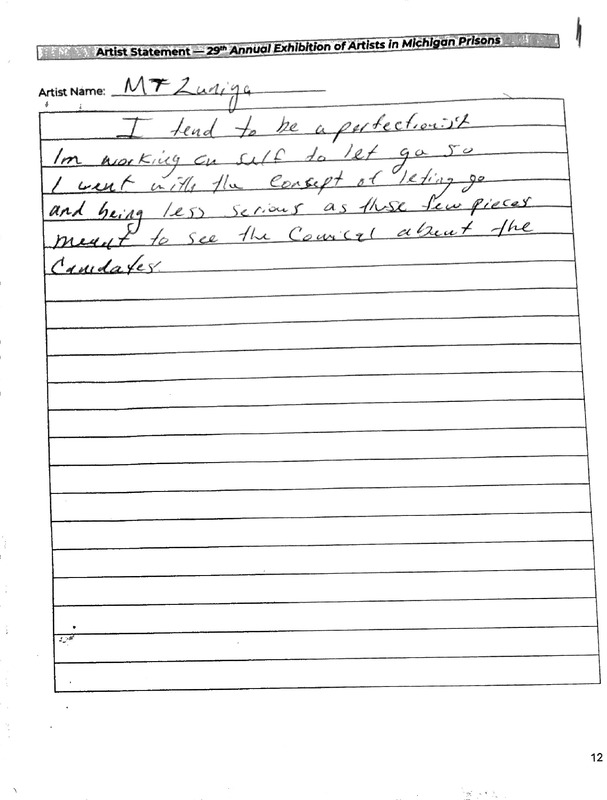 Artist Statement — 29th Annual Exhibition of Artists in Michigan Prisons
Artist Name: MT Zuniga
I tend to be a perfectionist
Im working on self to let go so
I went with the concept of leting go
and being less serious as these few pieces
meant to see the Comical about the
Canidates.
12